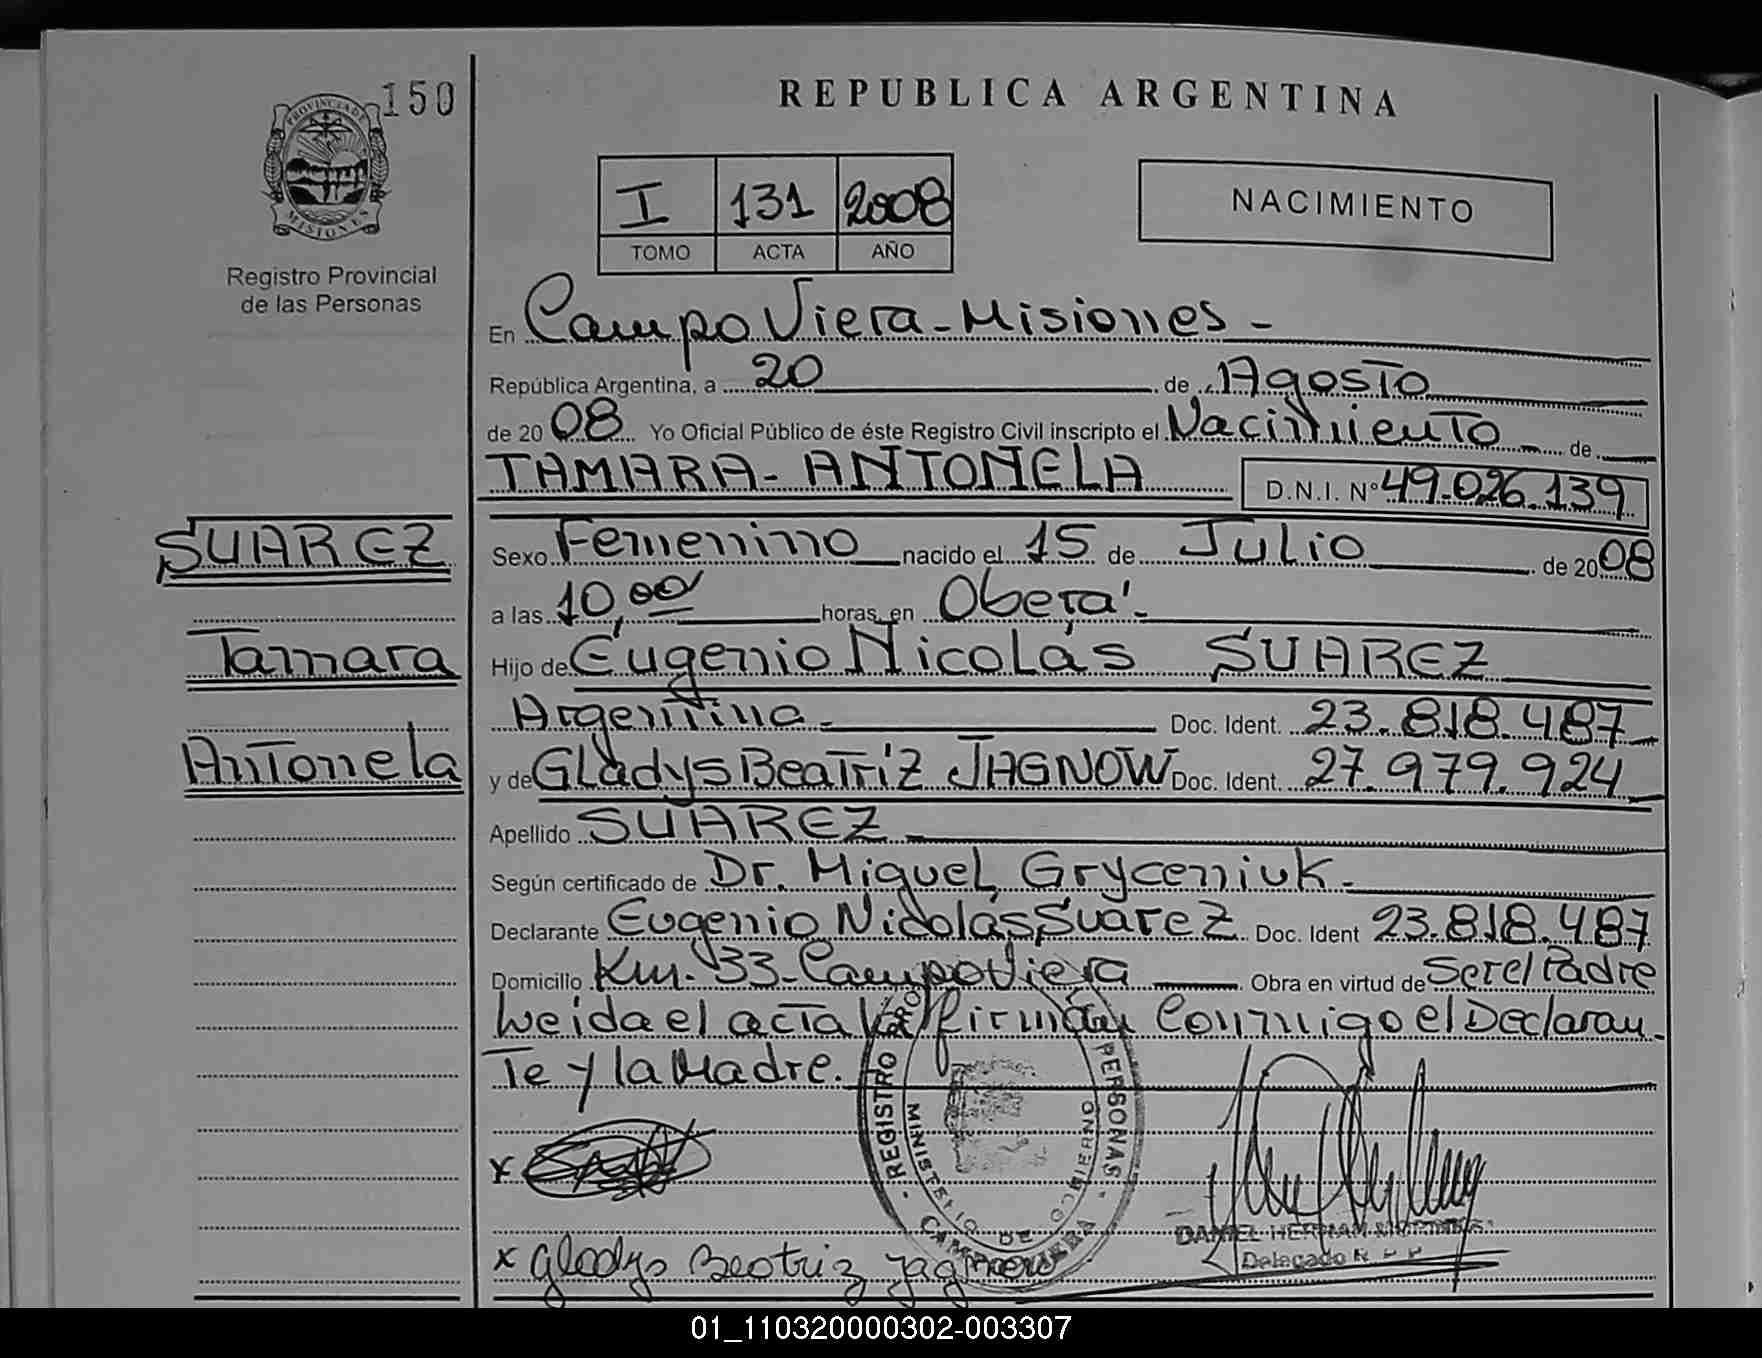 150
REPUBLICA ARGENTINA
PROVINCIA DE
MISIONES
I 131 2008
TOMO ACTA AÑO
NACIMIENTO
Registro Provincial
de las Personas
En Campo Viera - Misiones -
República Argentina, a 20 de Agosto
de 2008 Yo Oficial Público de éste Registro Civil inscripto el Nacimiento de
TAMARA - ANTONELA D.N.I. Nº 49.026.139
SUAREZ
Tamara
Antonela
Sexo Femenino nacido el 15 de Julio de 2008
a las 10,00 horas, en Oberá -
Hijo de Eugenio Nicolás SUAREZ
Argentina - Doc. Ident. 23.818.487
y de Gladys Beatríz JAGNOW Doc. Ident. 27.979.924
Apellido SUAREZ
Según certificado de Dr. Miguel Gryceniuk -
Declarante Eugenio Nicolás Suarez Doc. Ident 23.818.487
Domicilio Km. 33 - Campo Viera Obra en virtud de Ser el Padre
Leida el acta la firman Conmigo el Declaran-
Te y la Madre.
REGISTRO PERSONAS
MINISTERIO DE GOBIERNO
CAMPO VIERA
x
x Gladys Beatriz Jagnow
DANIEL HERNAN
Delegado R P P
01_110320000302-003307